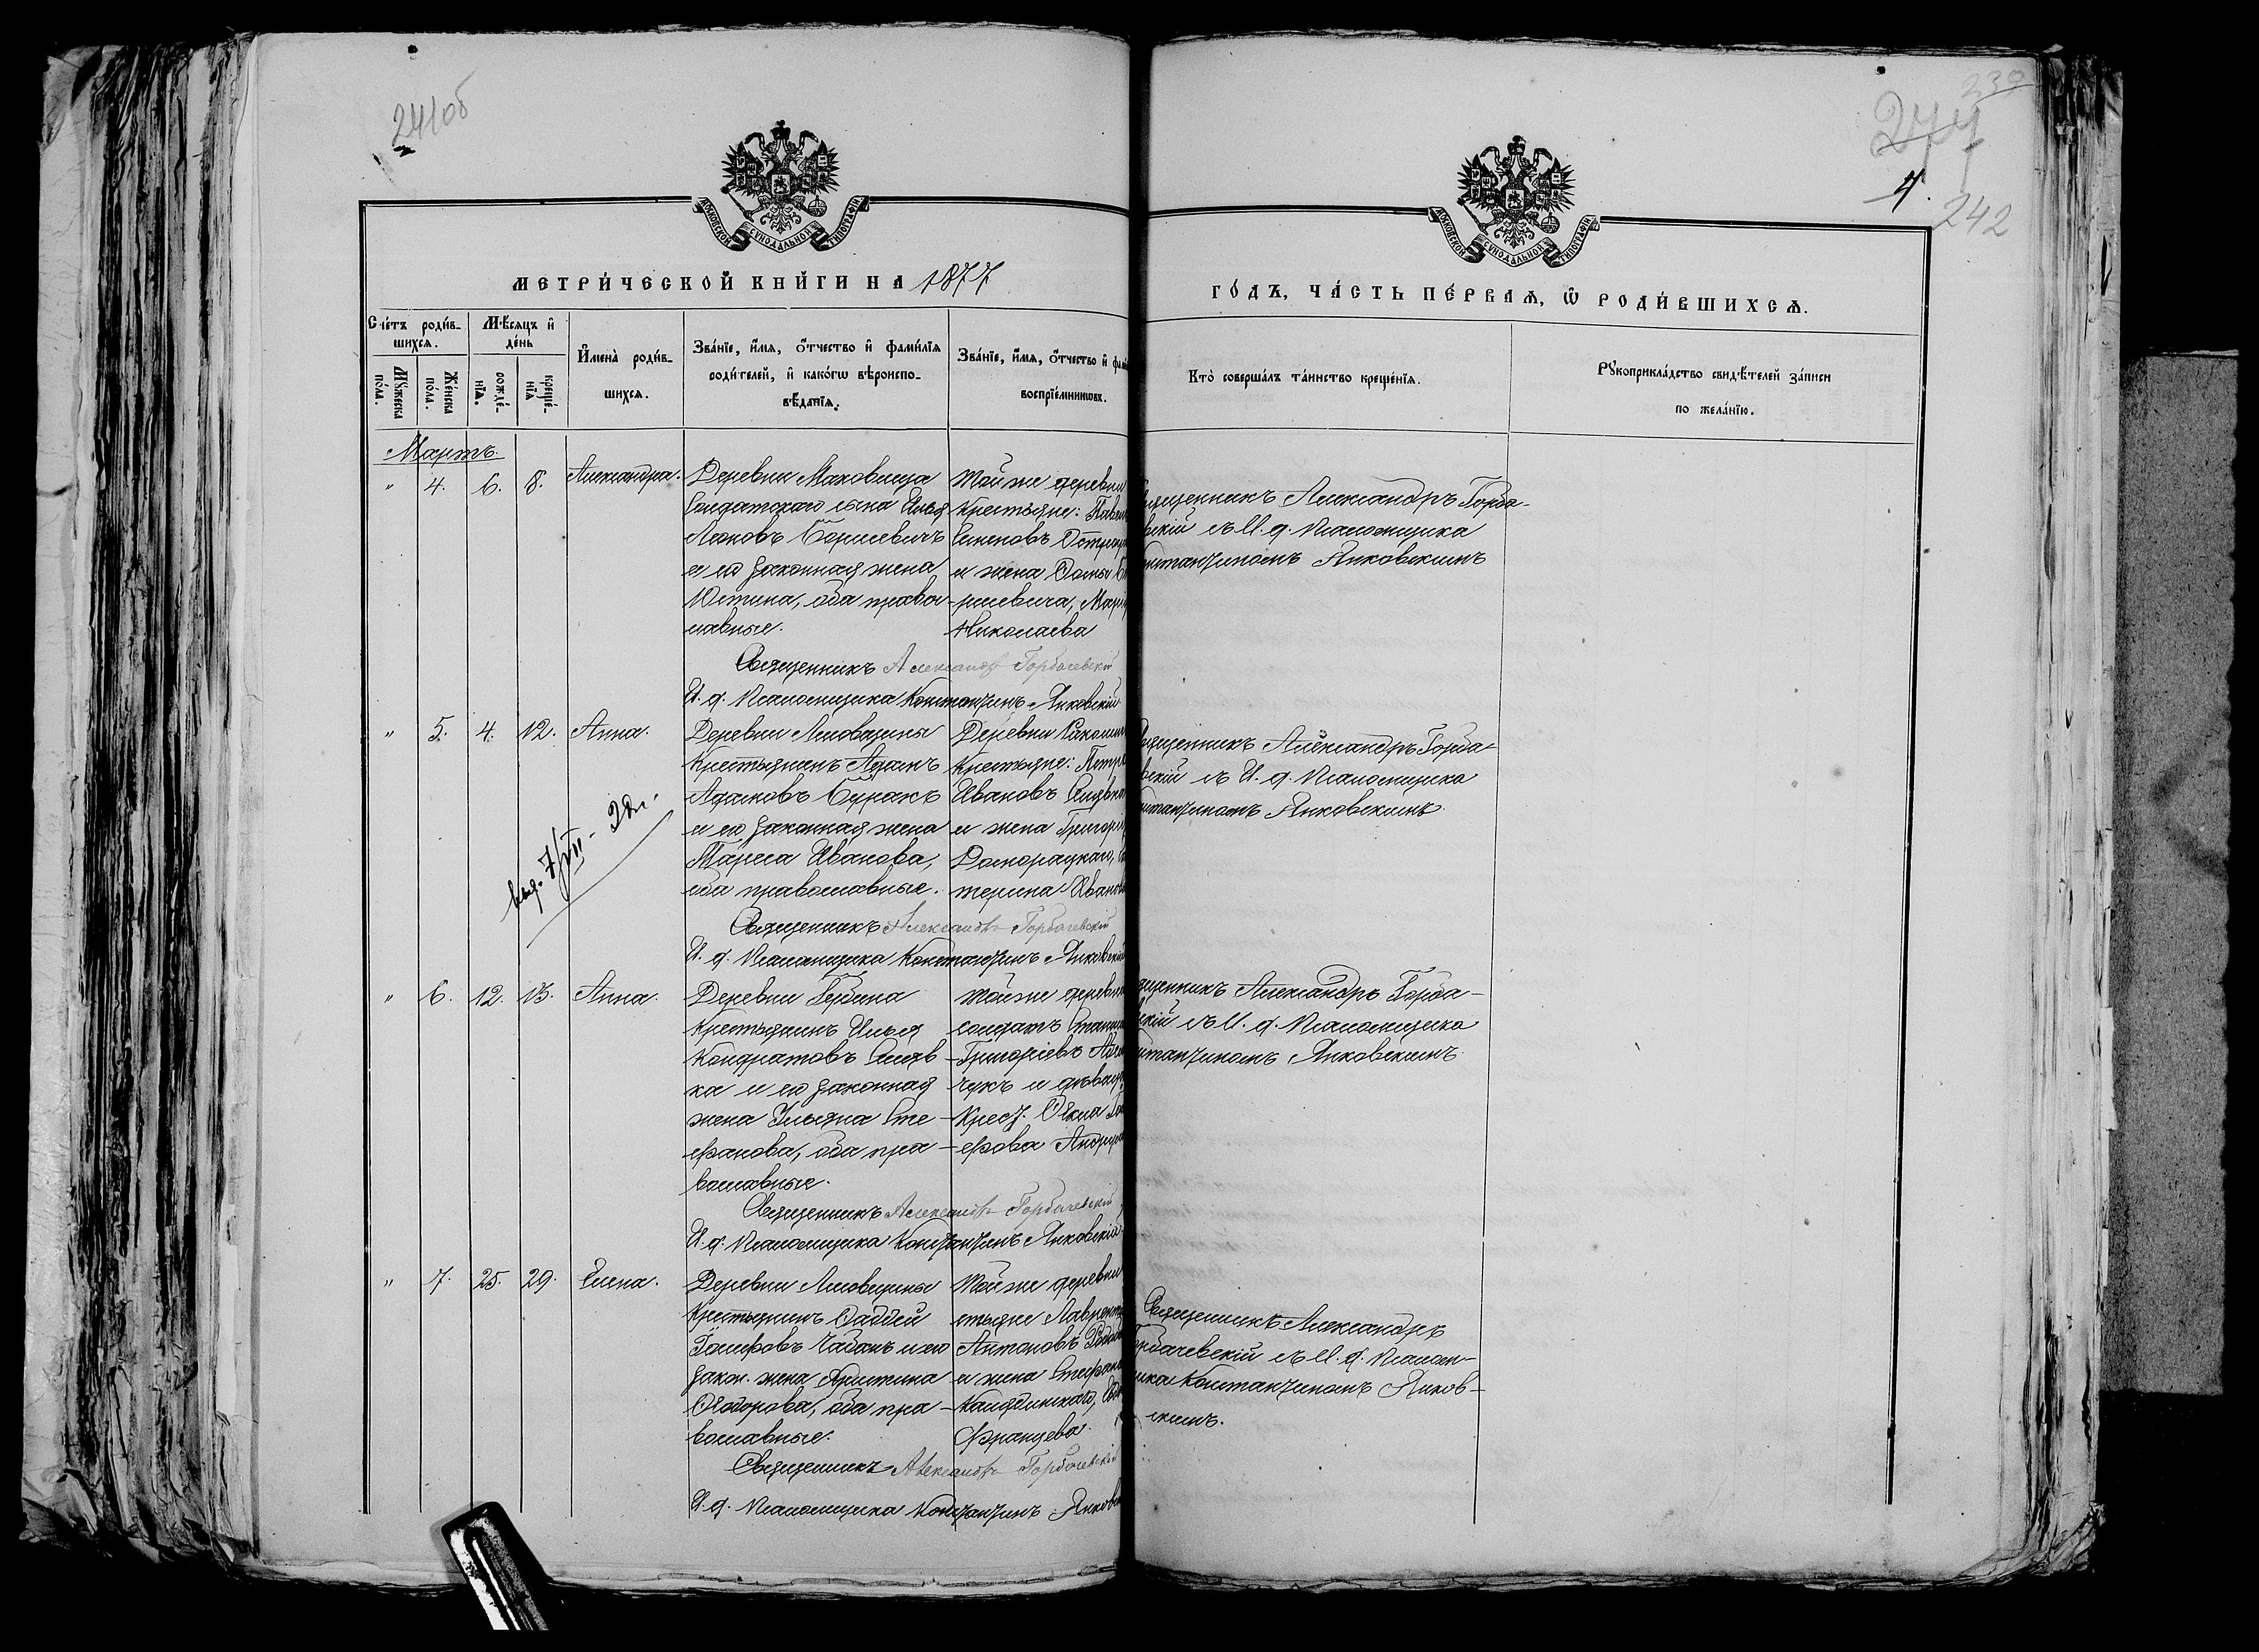 241об
239
244
4.
242
МОСКОВСКОЙ СѴНОДАЛЬНОЙ ТИПОГРАФІИ
МОСКОВСКОЙ СѴНОДАЛЬНОЙ ТИПОГРАФІИ
МЕТРИ́ЧЕСКОЙ КНИ́ГИ НА 1877
ГО́ДЪ, ЧА́СТЬ ПЕ́РВАЯ, Ѡ РОДИ́ВШИХСЯ.
Сче́тъ роди́в-
шихся.
Мѣ́сяцъ и
де́нь
Мꙋ́жеска
по́ла.
Же́нска
по́ла.
рожде́-
нїя.
креще́-
нїя
Имена̀ роди́в-
шихся.
Зва́нїе, и́мя, о́тчество и фами́лїя
роди́телей, и како́гѡ вѣроиспо-
вѣ́данїя.
Зва́нїе, и́мя, о́тчество и фами
воспрїе́мникѡвъ.
Кто̀ соверша́лъ та́инство креще́нїя.
Рꙋкоприкла́дство свидѣ́телей за́писи
по жела́нїю.
Мартъ.
" 4. 6. 8. Александра.
Деревни Маковища
Солдатскаго сына Илья
Борисевичъ
и его законная жена
Юстина, оба право-
славные.
той же деревни
Крестьяне: Павел
Семеновъ
и жена Фомы Бо
рисевича, Мар
Николаева
Священникъ Александръ Горба-
вскій съ И. д. Псаломщика
нстантиномъ Янковскимъ
Священникъ Александръ Горбачевскій
И. д. Псаломщика Константинъ Янковскій
" 5. 4. 12. Анна.
Деревни
Крестьянинъ Адамъ
Адамовъ Буракъ
и его законная жена
Марѳа Иванова,
оба православные.
Деревни
Крестьяне: Петръ
Ивановъ
и жена Григорія
Доморацкаго,
терина Иванов
Священникъ Александръ Горба-
вскій съ И. д. Псаломщика
нстантиномъ Янковскимъ.
выд. 7/VII - 28 г.
Священникъ Александръ Горбачевскій
И. д. Псаломщика Константинъ Янковскій
" 6. 12. 13. Анна.
Деревни
Крестьянинъ Илья
Кондратовъ Сляв-
ка и его законная
жена Ульяна Сте-
фанова, оба пра-
вославные.
той же деревни
солдатъ
Григоріевъ
чукъ и дѣвица
Крест. Ѳекла
ефова
щенникъ Александръ Горба-
вскій съ И. д. Псаломщика
нстантиномъ Янковскимъ.
Священникъ Александръ Горбачевскій
И. д. Псаломщика Константинъ Янковскій
" 7. 25. 29. Елена.
Деревни
Крестьянинъ Фаддей
Іосифовъ Чабанъ и его
закон. жена Христина
Ѳеодорова, оба пра-
вославные.
Той же деревни
стьяне Лаврентій
Антоновъ
и жена Стефана
Францева.
Священникъ Александръ
Горбачевскій съ И. д. Псалом-
щика Константиномъ Янков-
скимъ.
Священникъ Александръ Горбачевскій
И. д. Псаломщика Константинъ Янковск